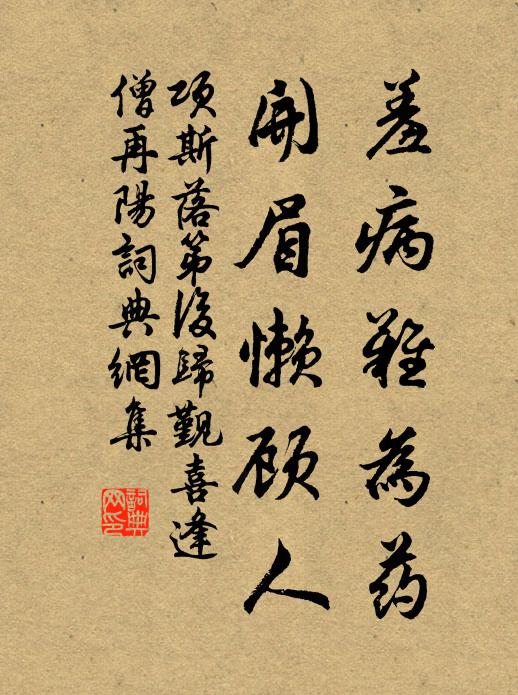 羞病難為药
開眉懶顧人
項斯落第後歸覲喜逢
僧再陽詞典網集
詞典
网印